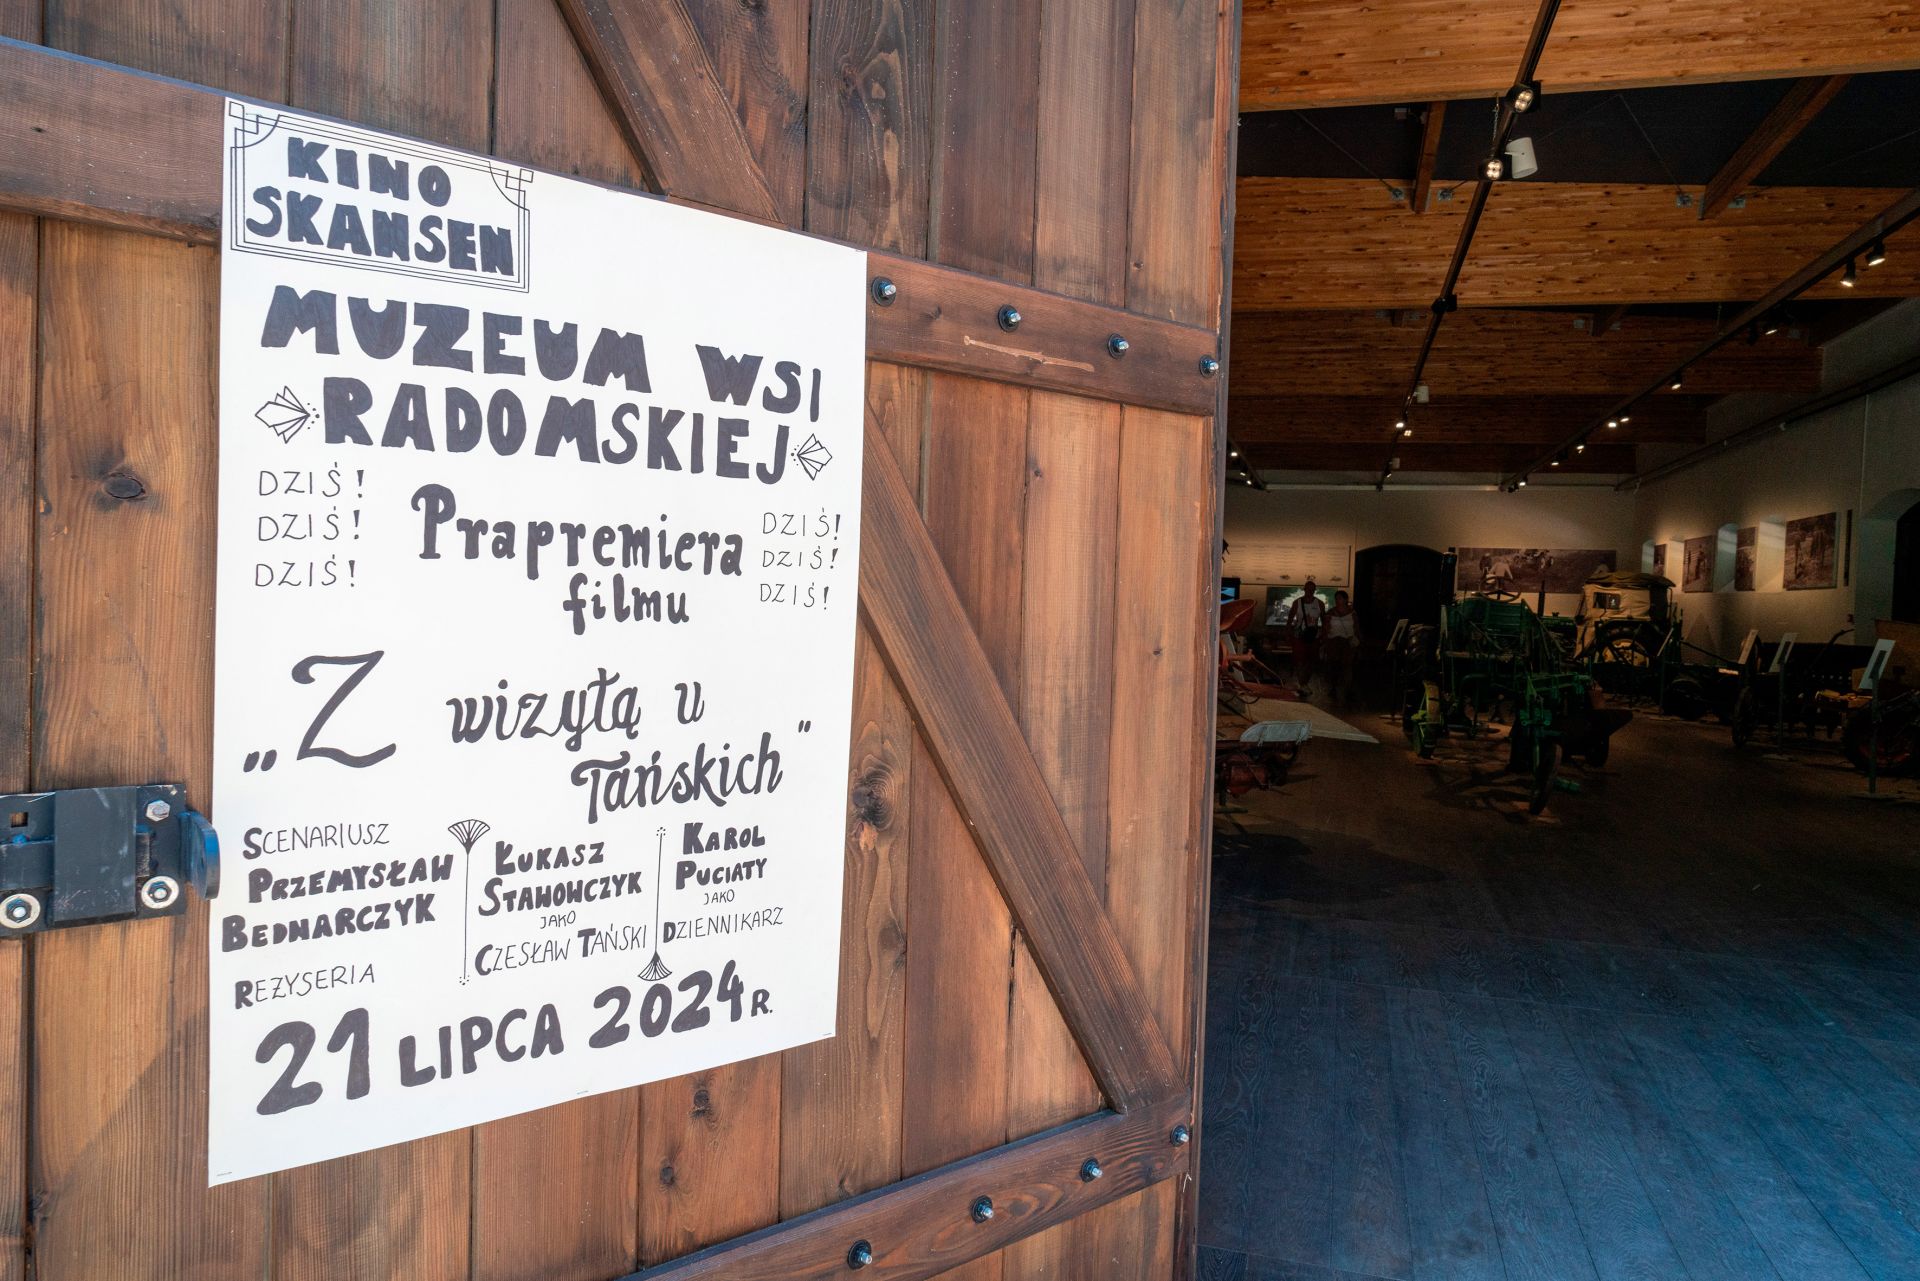 KINO
SKANSEN
MUZEUM WSI
RADOMSKIEJ
DZIŚ!
DZIŚ!
DZIŚ!
Prapremiera
filmu
DZIŚ!
DZIŚ!
DZIŚ!
„Z wizytą u
Tańskich"
SCENARIUSZ
PRZEMYSŁAW
BEDNARCZYK
REŻYSERIA
ŁUKASZ
STAWOWCZYK
JAKO
CZESŁAW TAŃSKI
KAROL
PUCIATY
JAKO
DZIENNIKARZ
21 LIPCA 2024 R.